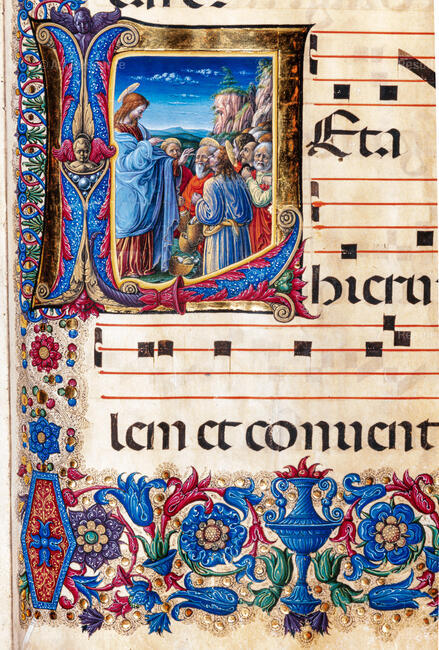 LEta
hieru
lem et conuent